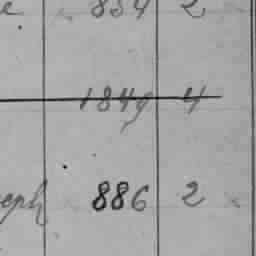 834 2
1849 4
eph 886 2